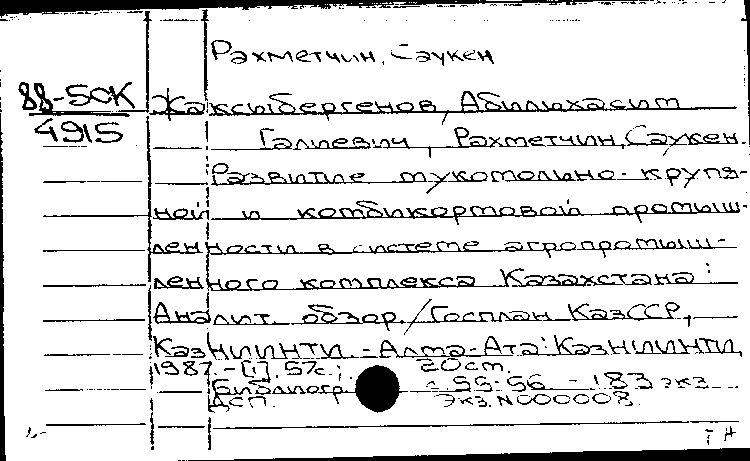 Рахметчин, Саукен
88-50К
4915
Жаксыбергенов, Абилихасим
Галиевич, Рахметчин, Саукен.
Развитие мукомольно-крупя-
ной и комбикормовой промыш-
ленности в системе агропромыш-
ленного комплекса Казахстана:
Аналит. обзор./Госплан КазССР,
КазНИИНТИ. - Алма-Ата: КазНИИНТИ,
1987. - [1], 57с.; 20см.
Библиогр.: с 55-56 - 183 экз
ДСП. Экз. N000008.
ТН